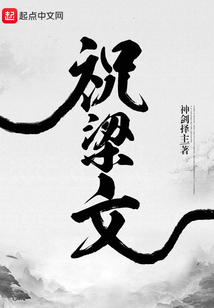 起点 起点中文网
祝梁文
神剑择主 著